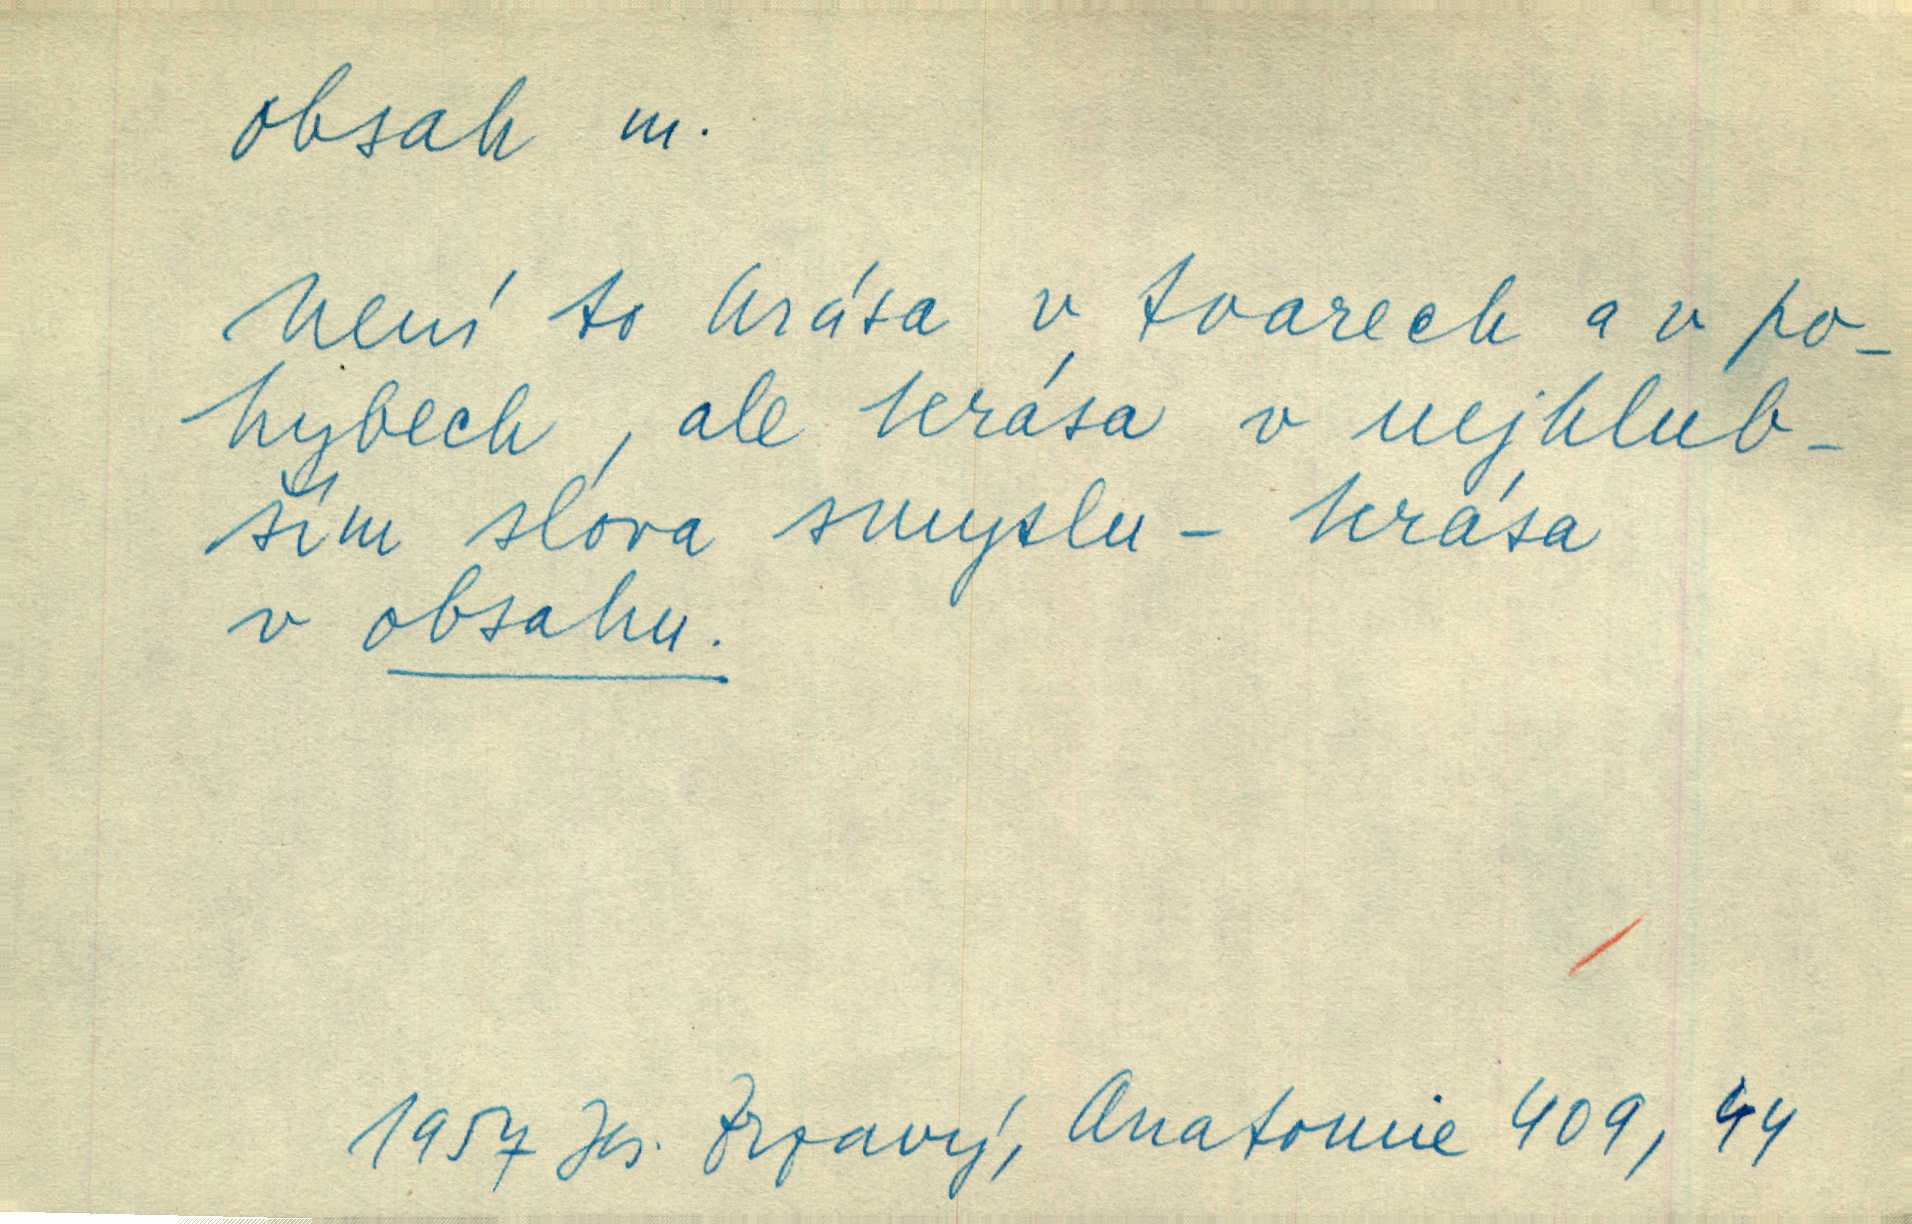 obsah m.
Není to krása v tvarech a v po-
hybech, ale krása v nejhlub-
ším slova smyslu - krása
v obsahu.
1957 Jos. Zrzavý, Anatomie 409, 44